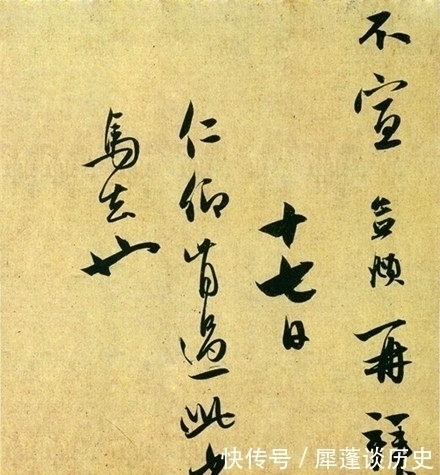 不宣 頓再拜
十七日
仁仰肯過此
馬去也
快传号/犀蓬谈历史